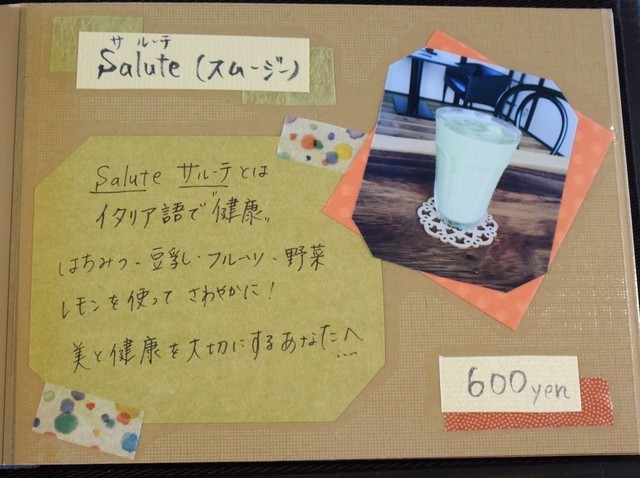 サルーテ
Salute (スムージー)
Salute サルーテとは
イタリア語で"健康"
はちみつ・豆乳・フルーツ・野菜
レモンを使って さわやかに!
美と健康を大切にするあなたへ…
600yen